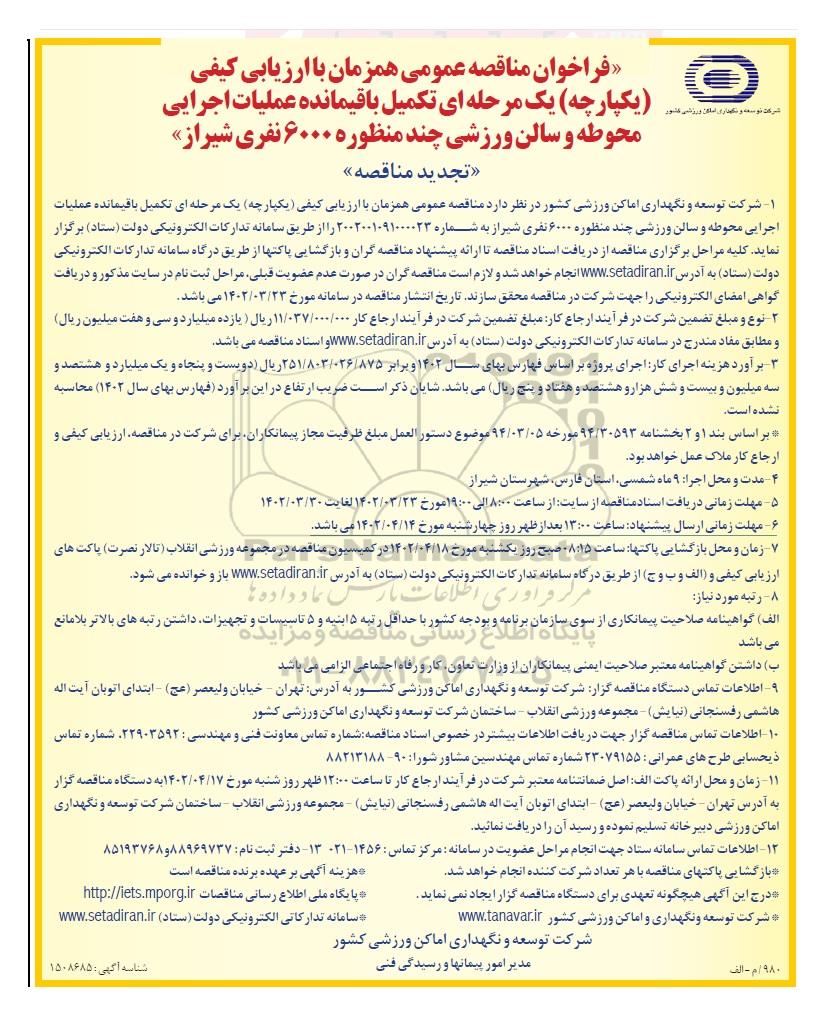 شرکت توسعه و نگهداری اماکن ورزشی کشور
«فراخوان مناقصه عمومی همزمان با ارزیابی کیفی
(یکپارچه) یک مرحله ای تکمیل باقیمانده عملیات اجرایی
محوطه و سالن ورزشی چند منظوره ۶۰۰۰ نفری شیراز»
«تجدید مناقصه»
۱- شرکت توسعه و نگهداری اماکن ورزشی کشور در نظر دارد مناقصه عمومی همزمان با ارزیابی کیفی (یکپارچه) یک مرحله ای تکمیل باقیمانده عملیات
اجرایی محوطه و سالن ورزشی چند منظوره ۶۰۰۰ نفری شیراز به شماره ۲۰۰۲۰۰۱۰۹۱۰۰۰۰۲۳ را از طریق سامانه تدارکات الکترونیکی دولت (ستاد) برگزار
نماید. کلیه مراحل برگزاری مناقصه از دریافت اسناد مناقصه تا ارائه پیشنهاد مناقصه گران و بازگشایی پاکتها از طریق درگاه سامانه تدارکات الکترونیکی
دولت (ستاد) به آدرس www.setadiran.ir انجام خواهد شد و لازم است مناقصه گران در صورت عدم عضویت قبلی، مراحل ثبت نام در سایت مذکور و دریافت
گواهی امضای الکترونیکی را جهت شرکت در مناقصه محقق سازند. تاریخ انتشار مناقصه در سامانه مورخ ۱۴۰۲/۰۳/۲۳ می باشد .
۲-نوع و مبلغ تضمین شرکت در فرآیند ارجاع کار: مبلغ تضمین شرکت در فرآیند ارجاع کار ۱۱/۰۳۷/۰۰۰/۰۰۰ ریال ( یازده میلیارد و سی و هفت میلیون ریال)
و مطابق مفاد مندرج در سامانه تدارکات الکترونیکی دولت (ستاد) به آدرس www.setadiran.ir و اسناد مناقصه می باشد.
۳-برآورد هزینه اجرای کار: اجرای پروژه بر اساس فهارس بهای سال ۱۴۰۲ و برابر ۲۵۱/۸۰۳/۰۲۶/۸۷۵ ریال (دویست و پنجاه و یک میلیارد و هشتصد و
سه میلیون و بیست و شش هزار و هشتصد و هفتاد و پنج ریال) می باشد. شایان ذکر است ضریب ارتفاع در این برآورد (فهارس بهای سال ۱۴۰۲) محاسبه
نشده است.
* بر اساس بند ۱ و ۲ بخشنامه ۹۴/۳۰۵۹۳ مورخه ۹۴/۰۳/۰۵ موضوع دستور العمل مبلغ ظرفیت مجاز پیمانکاران، برای شرکت در مناقصه، ارزیابی کیفی و
ارجاع کار ملاک عمل خواهد بود.
۴-مدت و محل اجرا: ۹ ماه شمسی، استان فارس، شهرستان شیراز
۵- مهلت زمانی دریافت اسناد مناقصه از سایت: از ساعت ۸:۰۰ الی ۱۹:۰۰ مورخ ۱۴۰۲/۰۳/۲۳ لغایت ۱۴۰۲/۰۳/۳۰
۶- مهلت زمانی ارسال پیشنهاد: ساعت ۱۳:۰۰ بعدازظهر روز چهارشنبه مورخ ۱۴۰۲/۰۴/۱۴ می باشد.
۷-زمان و محل بازگشایی پاکتها: ساعت ۰۸:۱۵ صبح روز یکشنبه مورخ ۱۴۰۲/۰۴/۱۸ در کمیسیون مناقصه در مجموعه ورزشی انقلاب (تالار نصرت) پاکت های
ارزیابی کیفی و (الف و ب و ج) از طریق درگاه سامانه تدارکات الکترونیکی دولت (ستاد) به آدرس www.setadiran.ir باز و خوانده می شود.
۸- رتبه مورد نیاز:
الف) گواهینامه صلاحیت پیمانکاری از سوی سازمان برنامه و بودجه کشور با حداقل رتبه ۵ ابنیه و ۵ تاسیسات و تجهیزات، داشتن رتبه های بالاتر بلامانع
می باشد
ب) داشتن گواهینامه معتبر صلاحیت ایمنی پیمانکاران از وزارت تعاون، کار و رفاه اجتماعی الزامی می باشد
۹- اطلاعات تماس دستگاه مناقصه گزار: شرکت توسعه و نگهداری اماکن ورزشی کشور به آدرس: تهران - خیابان ولیعصر (عج) - ابتدای اتوبان آیت اله
هاشمی رفسنجانی (نیایش) - مجموعه ورزشی انقلاب - ساختمان شرکت توسعه و نگهداری اماکن ورزشی کشور
۱۰-اطلاعات تماس مناقصه گزار جهت دریافت اطلاعات بیشتر در خصوص اسناد مناقصه: شماره تماس معاونت فنی و مهندسی : ۲۲۹۰۳۵۹۲، شماره تماس
ذیحسابی طرح های عمرانی : ۲۳۰۷۹۱۵۵ شماره تماس مهندسین مشاور شورا : ۹۰- ۸۸۲۱۳۱۸۸
۱۱- زمان و محل ارائه پاکت الف: اصل ضمانتنامه معتبر شرکت در فرآیند ارجاع کار تا ساعت ۱۲:۰۰ ظهر روز شنبه مورخ ۱۴۰۲/۰۴/۱۷ به دستگاه مناقصه گزار
به آدرس تهران - خیابان ولیعصر (عج) - ابتدای اتوبان آیت اله هاشمی رفسنجانی (نیایش) - مجموعه ورزشی انقلاب - ساختمان شرکت توسعه و نگهداری
اماکن ورزشی دبیرخانه تسلیم نموده و رسید آن را دریافت نمائید.
۱۲-اطلاعات تماس سامانه ستاد جهت انجام مراحل عضویت در سامانه : مرکز تماس : ۱۴۵۶-۰۲۱ ۱۳- دفتر ثبت نام : ۸۸۹۶۹۷۳۷ و ۸۵۱۹۳۷۶۸
*بازگشایی پاکتهای مناقصه با هر تعداد شرکت کننده انجام خواهد شد. *هزینه آگهی بر عهده برنده مناقصه است
*درج این آگهی هیچگونه تعهدی برای دستگاه مناقصه گزار ایجاد نمی نماید . *پایگاه ملی اطلاع رسانی مناقصات http://iets.mporg.ir
* شرکت توسعه و نگهداری و اماکن ورزشی کشور www.tanavar.ir *سامانه تدارکاتی الکترونیکی دولت (ستاد) www.setadiran.ir
شرکت توسعه و نگهداری اماکن ورزشی کشور
مدیر امور پیمانها و رسیدگی فنی
۹۸۰/م-الف
شناسه آگهی : ۱۵۰۸۶۸۵
ParsNamadData
مرکز فرآوری اطلاعات پارس نماد داده ها
پایگاه اطلاع رسانی مناقصه و مزایده
۰۲۱-۸۸۳۴۹۶۷۰-۵